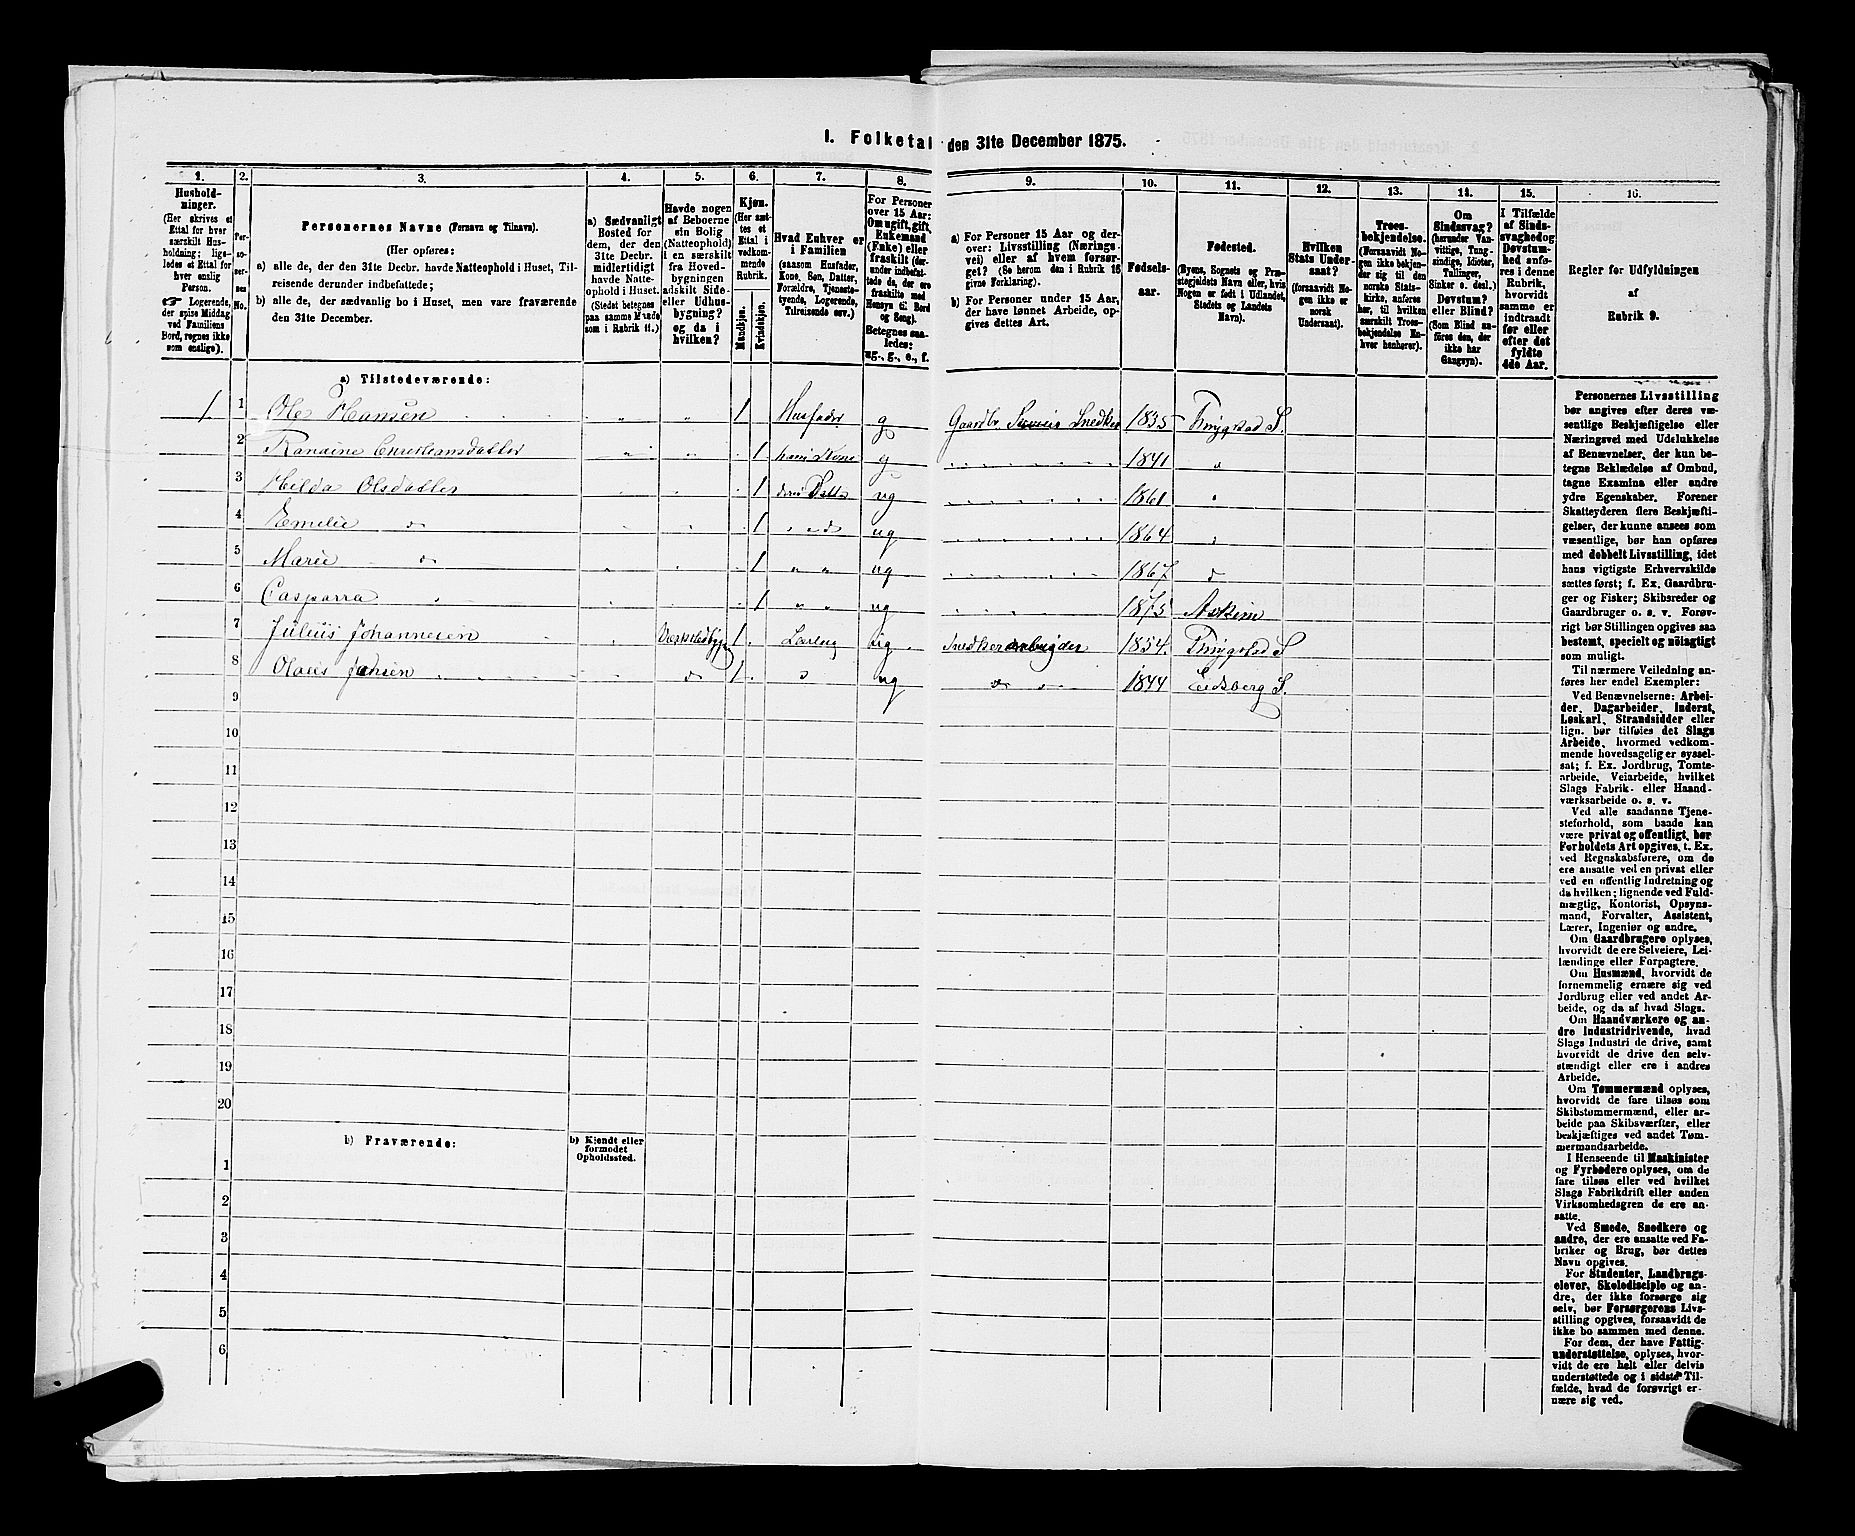 I. Folketal den 31te December 1875.
1. 2. 3. 4. 5. 6. 7. 8. 9. 10. 11. 12. 13. 14. 15. 16.
Hushold-
ninger.
(Her skrives et
Ettal for hver
særskilt Hus-
holdning; lige-
ledes et Ettal for
hver enslig
Person.
☞ Logerende,
der spise Middag
ved Familiens
Bord, regnes ikke
som enslige).
Per-
so-
ner-
nes
No.
Personernes Navne (Fornavn og Tilnavn).
(Her opføres:
a) alle de, der den 31te Decbr. havde Natteophold i Huset, Til-
reisende derunder indbefattede;
b) alle de, der sædvanlig bo i Huset, men vare fraværende
den 31te December.
a) Sædvanligt
Bosted for
dem, der den
31te Decbr.
midlertidigt
havde Natte-
ophold i Huset.
(Stedet betegnes
paa samme Maade
som i Rubrik 11.)
Havde nogen
af Beboerne
sin Bolig
(Natteophold)
i en særskilt
fra Hoved-
bygningen
adskilt Side-
eller Udhus-
bygning?
og da i
hvilken?
Kjøn.
(Her sæt-
tes et
Ettal i
vedkom-
mende
Rubrik.
Mandkjøn.
Kvindekjøn.
Hvad Enhver er
i Familien
(saasom Husfader,
Kone, Søn, Datter,
Forældre, Tjeneste-
tyende, Logerende,
Tilreisende osv.)
For Personer
over 15 Aar:
Om ugift, gift,
Enkemand
(Enke) eller
fraskilt (der-
under indbefat-
tede de, der ere
fraskilte med
Hensyn til Bord
og Seng).
Betegnes saa-
ledes:
ug., g., e., f.
a) For Personer 15 Aar og der-
over: Livsstilling (Nærings-
vei) eller af hvem forsør-
get? (Se herom den i Rubrik 16
givne Forklaring).
b) For Personer under 15 Aar,
der have lønnet Arbeide, op-
gives dettes Art.
Fødsels-
aar.
Fødested.
(Byens, Sognets og Præ-
stegjeldets Navn eller, hvis
Nogen er født i Udlandet,
Stedets og Landets
Navn).
Hvilken
Stats Under-
saat?
(forsaavidt No-
gen ikke er
norsk
Undersaat).
Troes-
bekjendelse.
(Forsaavidt No-
gen ikke bekjen-
der sig til den
norske Stats-
kirke, anføres
her, til hvilken
særskilt Troes-
bekjendelse En-
hver henhører).
Om
Sindssvag?
(herunder Van-
vittige, Tung-
sindige, Idioter,
Tullinger,
Sinker o. desl.)
Døvstum?
eller Blind?
(Som Blind an-
føres den, der
ikke har
Gangsyn).
I Tilfælde
af Sinds-
svaghed og
Døvstum-
hed anfø-
res i denne
Rubrik,
hvorvidt
samme er
indtraadt
før eller
efter det
fyldte
4de Aar.
Regler for Udfyldningen
af
Rubrik 9.
a) Tilstedeværende:
1 1 Ole Hansen " " 1 Husfader g Gaardbr. Selveier Snedker 1835 Trøgstad S.
2 Randine Christiansdatter " " 1 hans Kone g 1841 "
3 Hilda Olsdatter 1 deres Datter ug 1861 "
4 Emilie do 1 " do ug 1864 "
5 Marie do 1 " " ug 1867 do
6 Casparra " 1 " " ug 1875 Askim
7 Julius Johannesen 1 Lærling ug Snedkerarbeider 1854. Trøgstad S
8 Olaus Jensen do 1 do ug do do 1844 Eidsberg S.
9
10
11
12
13
14
15
16
17
18
19
20
b) Fraværende:
b) Kjendt eller
formodet
Opholdssted.
1
2
3
4
5
6
Personernes Livsstilling
bør angives efter deres væ-
sentlige Beskjæftigelse eller
Næringsvei med Udelukkelse
af Benævnelser, der kun be-
tegne Beklædelse af Ombud,
tagne Examina eller andre
ydre Egenskaber. Forener
Skatteyderen flere Beskjæfti-
gelser, der kunne ansees som
væsentlige, bør han opføres
med dobbelt Livsstilling, idet
hans vigtigste Erhvervskilde
sættes først; f. Ex. Gaardbru-
ger og Fisker; Skibsreder og
Gaardbruger o. s. v. Forøv-
rigt bør Stillingen opgives saa
bestemt, specielt og nøiagtigt
som muligt.
Til nærmere Veiledning an-
føres her endel Exempler:
Ved Benævnelserne: Arbei-
der, Dagarbeider, Inderst,
Løskarl, Strandsidder eller
lign. bør tilføies det Slags
Arbeide, hvormed vedkom-
mende hovedsagelig er syssel-
sat; f. Ex. Jordbrug, Tomte-
arbeide, Veiarbeide, hvilket
Slags Fabrik- eller Haand-
værksarbeide o. s. v.
Ved alle saadanne Tjene-
steforhold, som baade kan
være privat og offentligt, bør
Forholdets Art opgives, t. Ex.
ved Regnskabsførere, om de
ere ansatte ved en privat eller
ved en offentlig Indretning og
da hvilken; lignende ved Fuld-
mægtig, Kontorist, Opsyns-
mand, Forvalter, Assistent,
Lærer, Ingeniør og andre.
Om Gaardbrugere oplyses,
hvorvidt de ere Selveiere, Lei-
lændinge eller Forpagtere.
Om Husmænd, hvorvidt de
fornemmelig ernære sig ved
Jordbrug eller ved andet Ar-
beide, og da af hvad Slags.
Om Haandværkere og an-
dre Industridrivende, hvad
Slags Industri de drive, samt
hvorvidt de drive den selv-
stændigt eller ere i andres
Arbeide.
Om Tømmermænd oplyses,
hvorvidt de fare tilsøs som
Skibstømmermænd, eller ar-
beide paa Skibsværfter, eller
beskjæftiges ved andet Tøm-
mermandsarbeide.
I Henseende til Maskinister
og Fyrbødere oplyses, om de
fare tilsøs eller ved hvilket
Slags Fabrikdrift eller anden
Virksomhedsgren de ere an-
satte.
Ved Smede, Snedkere og
andre, der ere ansatte ved Fa-
briker og Brug, bør dettes
Navn opgives.
For Studenter, Landbrugs-
elever, Skoledisciple og an-
dre, der ikke forsørge sig
selv, bør Forsørgerens Livs-
stilling opgives, forsaavidt de
ikke bo sammen med denne.
For dem, der have Fattig-
understøttelse, oplyses, hvor-
vidt de ere helt eller delvis
understøttede og i sidste Til-
fælde, hvad de forøvrigt er-
nære sig ved.